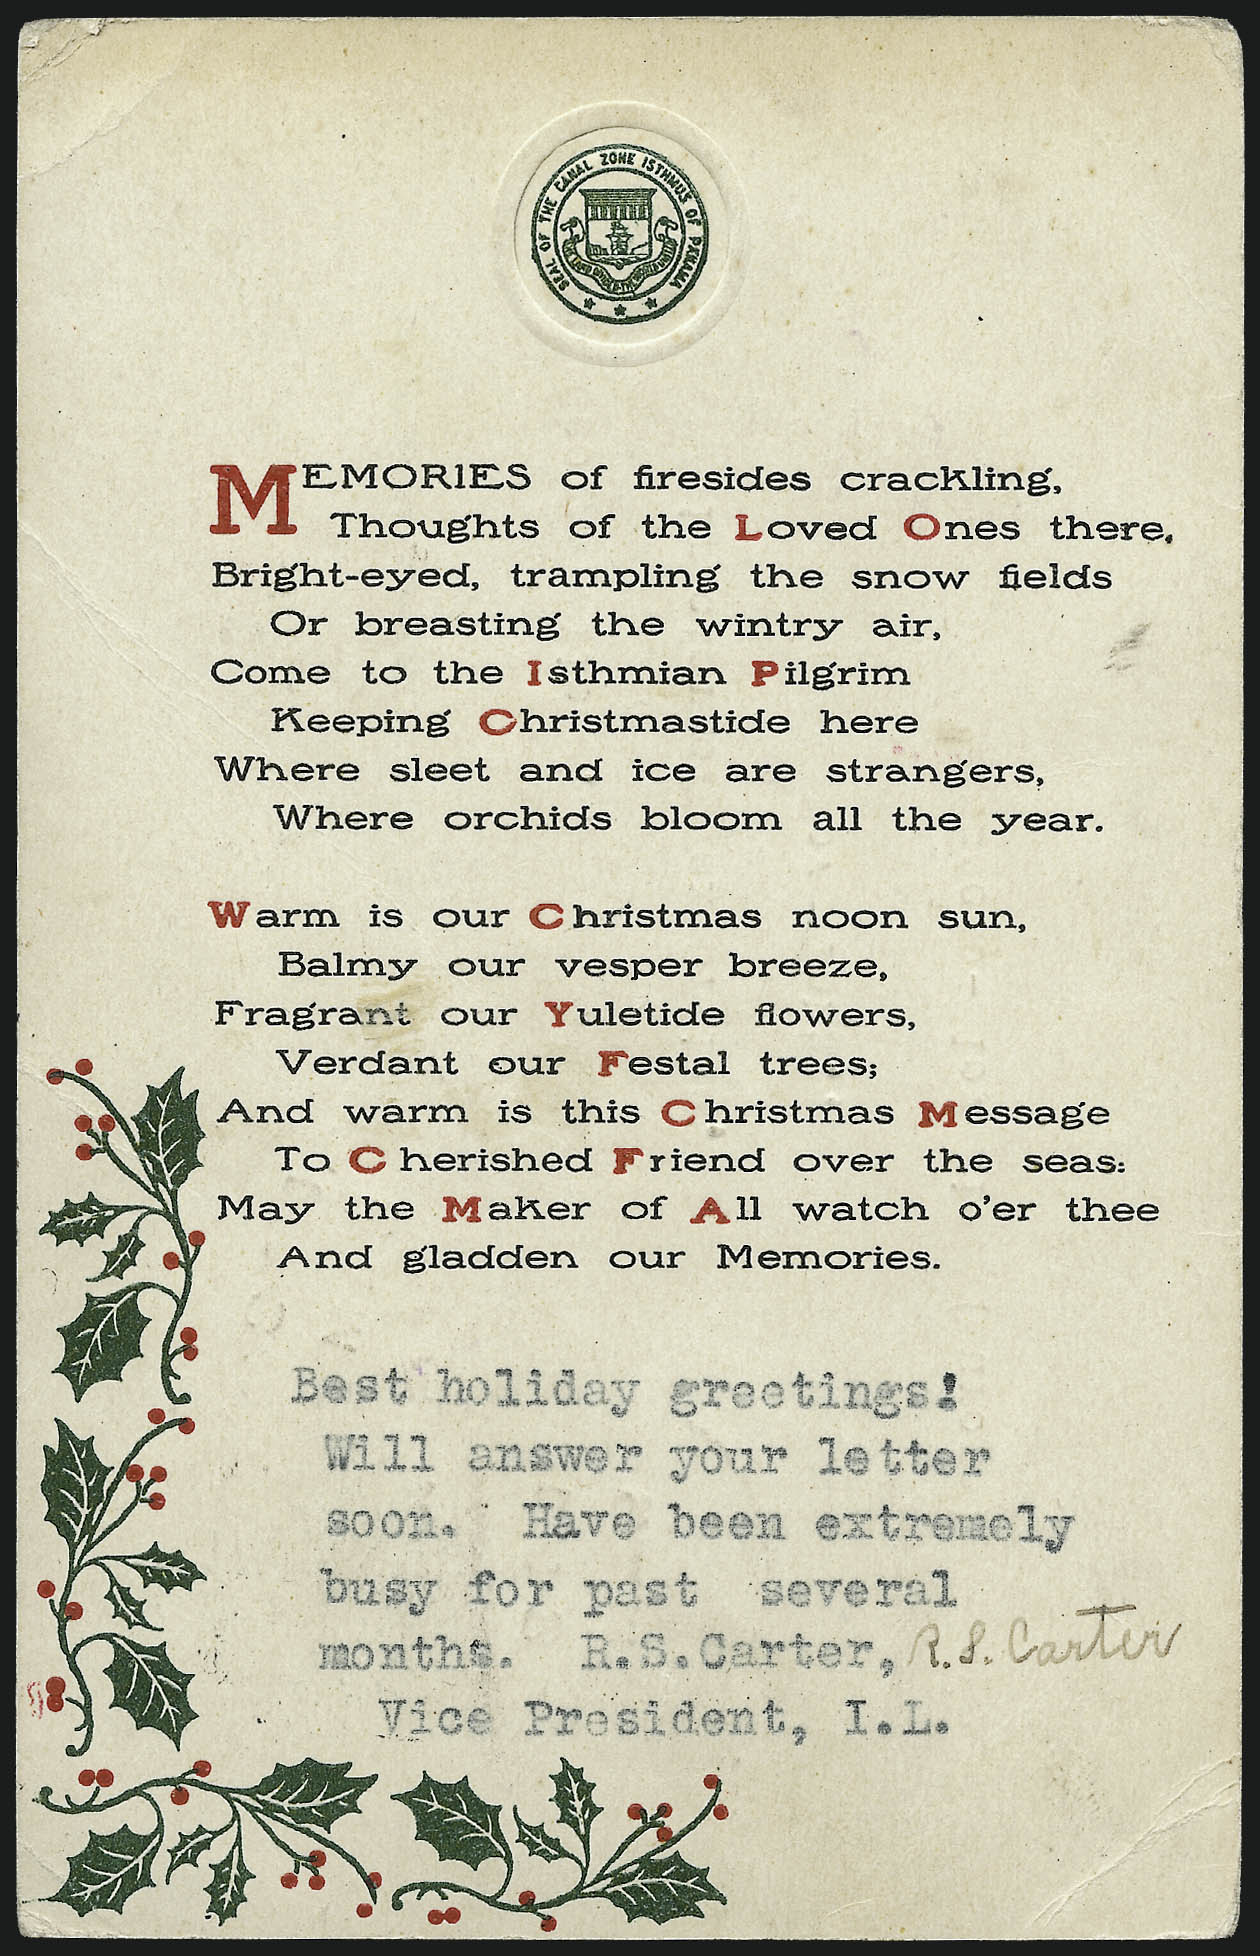 SEAL OF THE CANAL ZONE ISTHMUS OF PANAMA
THE LAND DIVIDED THE WORLD UNITED
MEMORIES of firesides crackling,
Thoughts of the Loved Ones there,
Bright-eyed, trampling the snow fields
Or breasting the wintry air,
Come to the Isthmian Pilgrim
Keeping Christmastide here
Where sleet and ice are strangers,
Where orchids bloom all the year.
Warm is our Christmas noon sun,
Balmy our vesper breeze,
Fragrant our Yuletide flowers,
Verdant our Festal trees;
And warm is this Christmas Message
To Cherished Friend over the seas:
May the Maker of All watch o'er thee
And gladden our Memories.
Best holiday greetings!
Will answer your letter
soon. Have been extremely
busy for past several
months. R.S.Carter, R.S. Carter
Vice President, I.L.